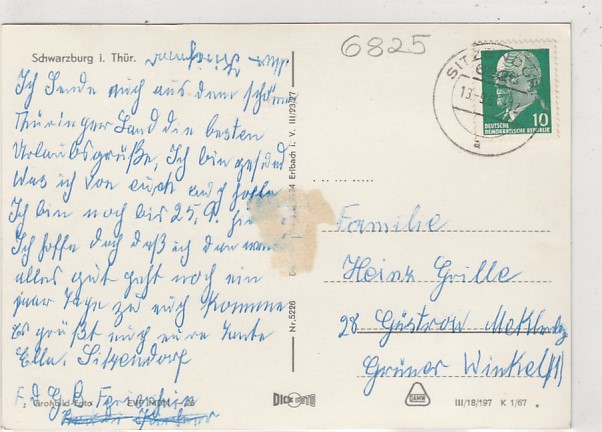 Schwarzburg i. Thür.
6825
Ich Sende euch aus dem schönen
Thüringer Land die besten
Urlaubsgrüße, Ich bin gesund
Was ich von euch auch hoffe
Ich bin noch bis 25, 9. hier
Ich hoffe doch daß ich dann wenn
alles gut geht noch ein
paar Tage zu euch komme
Es grüßt euch eure Tante
Ella. Sitzendorf
F. d. G. B.
Großbild-Foto
Nr. 5226
Erlbach i. V. III/23/27
SITZENDORF
13.-9.
10
DEUTSCHE
DEMOKRATISCHE REPUBLIK
Familie
Heinz Grille
28 Güstrow Mecklenbg
Grüner Winkel 11
DICK
III/18/197 K 1/67